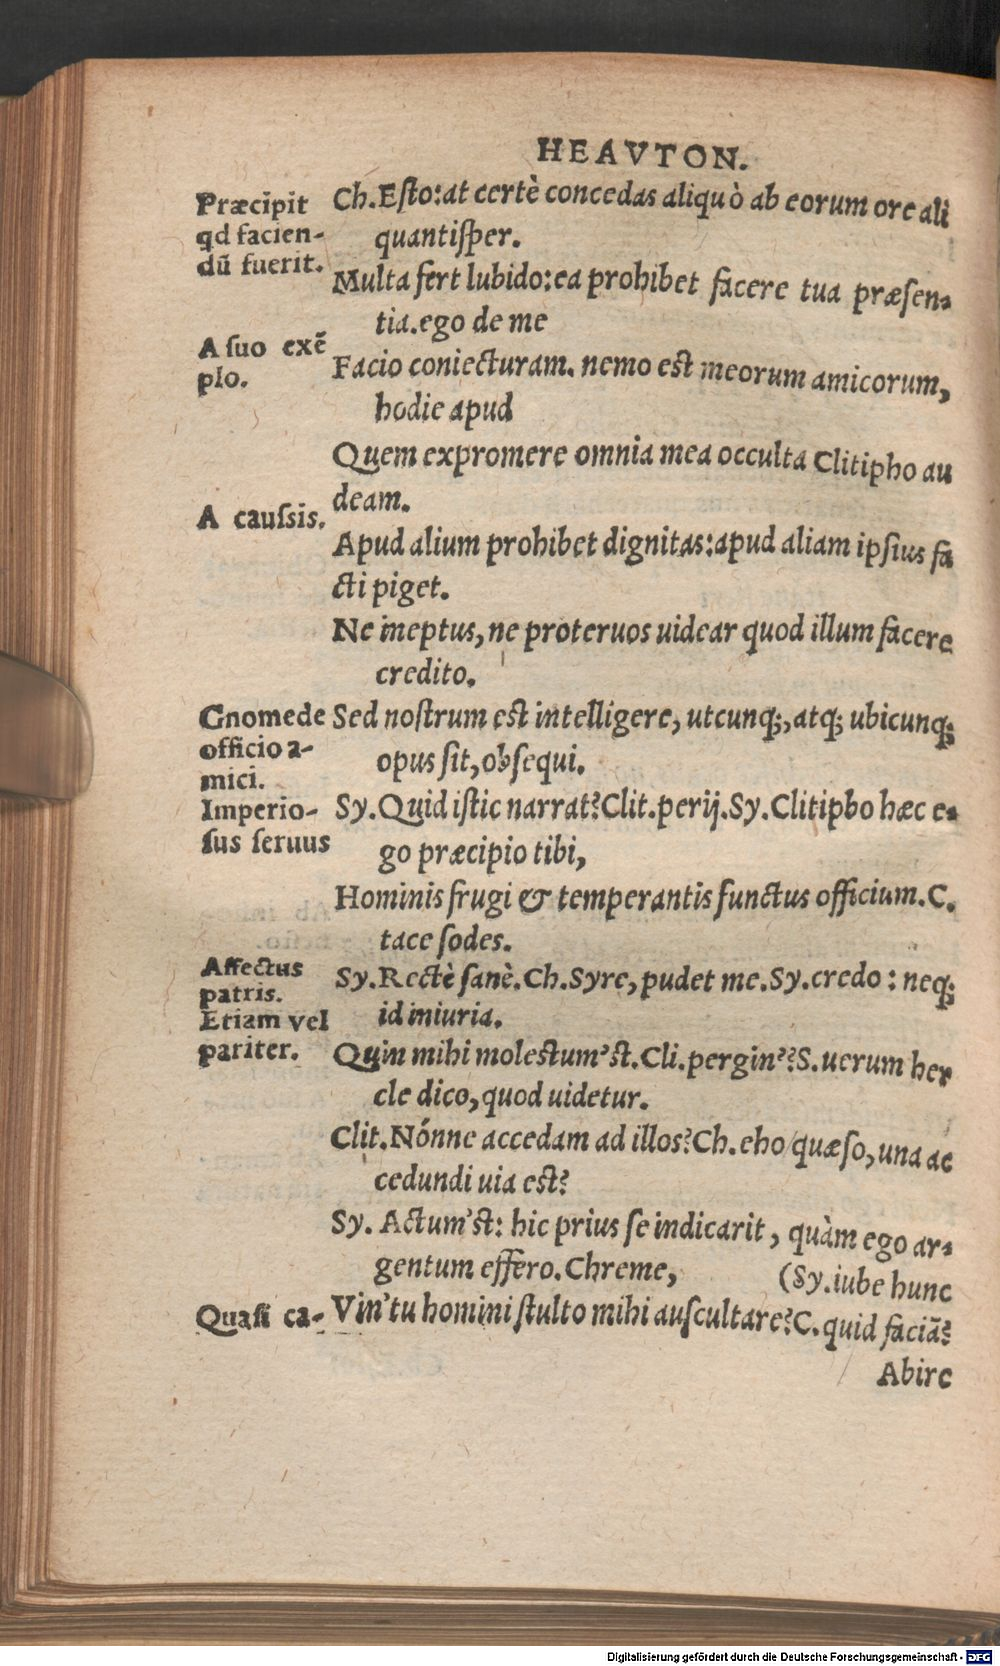 HEAVTON.
Præcipit
qd facien-
dũ fuerit.
Ch. Eſto: at certè concedas aliquò ab eorum ore ali
quantiſper.
Multa fert lubido: ea prohibet facere tua præſen-
tia. ego de me
A ſuo exẽ
plo.
Facio coniecturam. nemo est meorum amicorum,
hodie apud
Quem expromere omnia mea occulta Clitipho au
deam.
A cauſsis.
Apud alium prohibet dignitas: apud aliam ipſius fa
cti piget.
Ne ineptus, ne proteruos uidear quod illum facere
credito.
Gnome de
officio a-
mici.
Sed noſtrum est intelligere, utcunq;, atq; ubicunq;
opus ſit, obſequi.
Imperio-
ſus ſeruus
Sy. Quid iſtic narrat? Clit. perij. Sy. Clitipho hæc e-
go præcipio tibi,
Hominis frugi & temperantis functus officium. C.
tace ſodes.
Affectus
patris.
Etiam vel
pariter.
Sy. Rectè ſanè. Ch. Syre, pudet me. Sy. credo: neq;
id iniuria.
Quin mihi molestum'ſt. Cli. pergin'? S. uerum her
cle dico, quod uidetur.
Clit. Nónne accedam ad illos? Ch. eho quæſo, una ac
cedundi uia est?
Sy. Actum'ſt: hic prius ſe indicarit, quàm ego ar-
gentum effero. Chreme, (Sy. iube hunc
Quaſi ca-
Vin' tu homini ſtulto mihi auſcultare? C. quid faciã?
Abire
Digitalisierung gefördert durch die Deutsche Forschungsgemeinschaft - DFG